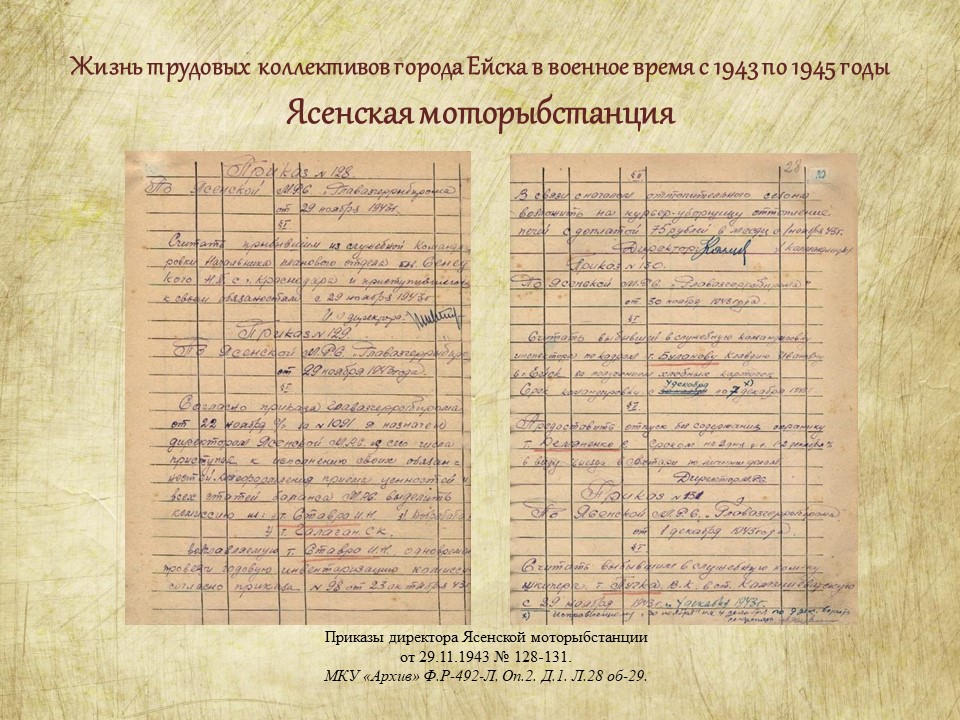 Жизнь трудовых коллективов города Ейска в военное время с 1943 по 1945 годы
Ясенская моторыбстанция
Приказ № 128.
По Ясенской М.Р.С. „Главазчеррыбпрома
от 29 ноября 1943г.
§I
Считать прибывшим из служебной команди
ровки Начальника планового отдела
кого Н.В. с г. Краснодара и приступившего
к своим обязаностям с 29 ноября 1943г
И.О директора:
Приказ № 129
По Ясенской М.Р.С. „Главазчеррыбпро
от 29 ноября 1943 года.
§I
Согласно приказа Главазчеррыбпрома
от 22 ноября с/г за № 1091 я назначен
директором Ясенской М.Р.С. и с сего числа
приступил к исполнению своих обязан-
ностей. Для оформления приема ценностей и
всех статей баланса М.Р.С. выделить
комиссию из: т. Ставро И.Н.
и т. Галаган С.К.
возглавляемую т. Ставро И.Н. одновремен
провести годовую инвентаризацию
согласно приказа № 98 от 23 октября 43г
28
§II
В связи с началом отопительного сезона
возложить на курьер-уборщицу отопление
печей с доплатой 75 рублей в месяц с 1 ноября 43г.
Директор
Приказ № 130.
По Ясенской М.Р.С. „Главазчеррыбпрома"
от 30 ноября 1943 года.
§I
Считать выбывшей в служебную командировку
инспектора по кадрам т. Буганову Клавдию Иванов
в г. Ейск за получением хлебных карточек
Срок командировки с 4 декабря по 7 декабря 1943г.
§II
Предоставить отпуск без содержания охраннику
т. Демяненко сроком на 2 дня с 1 декабря
в виду выезда по личным делам.
Директор МРС
Приказ № 131
По Ясенской М.Р.С. „Главазчеррыбпрома
от 1 декабря 1943 года
§I
Считать выбывшим в служебную коман.
шкипера т. Пучка В.К. в ст. Камышеватскую
с 29 ноября 1943г. 4 декабря 1943г.
Приказы директора Ясенской моторыбстанции
от 29.11.1943 № 128-131.
МКУ «Архив» Ф.Р-492-Л. Оп.2. Д.1. Л.28 об-29.